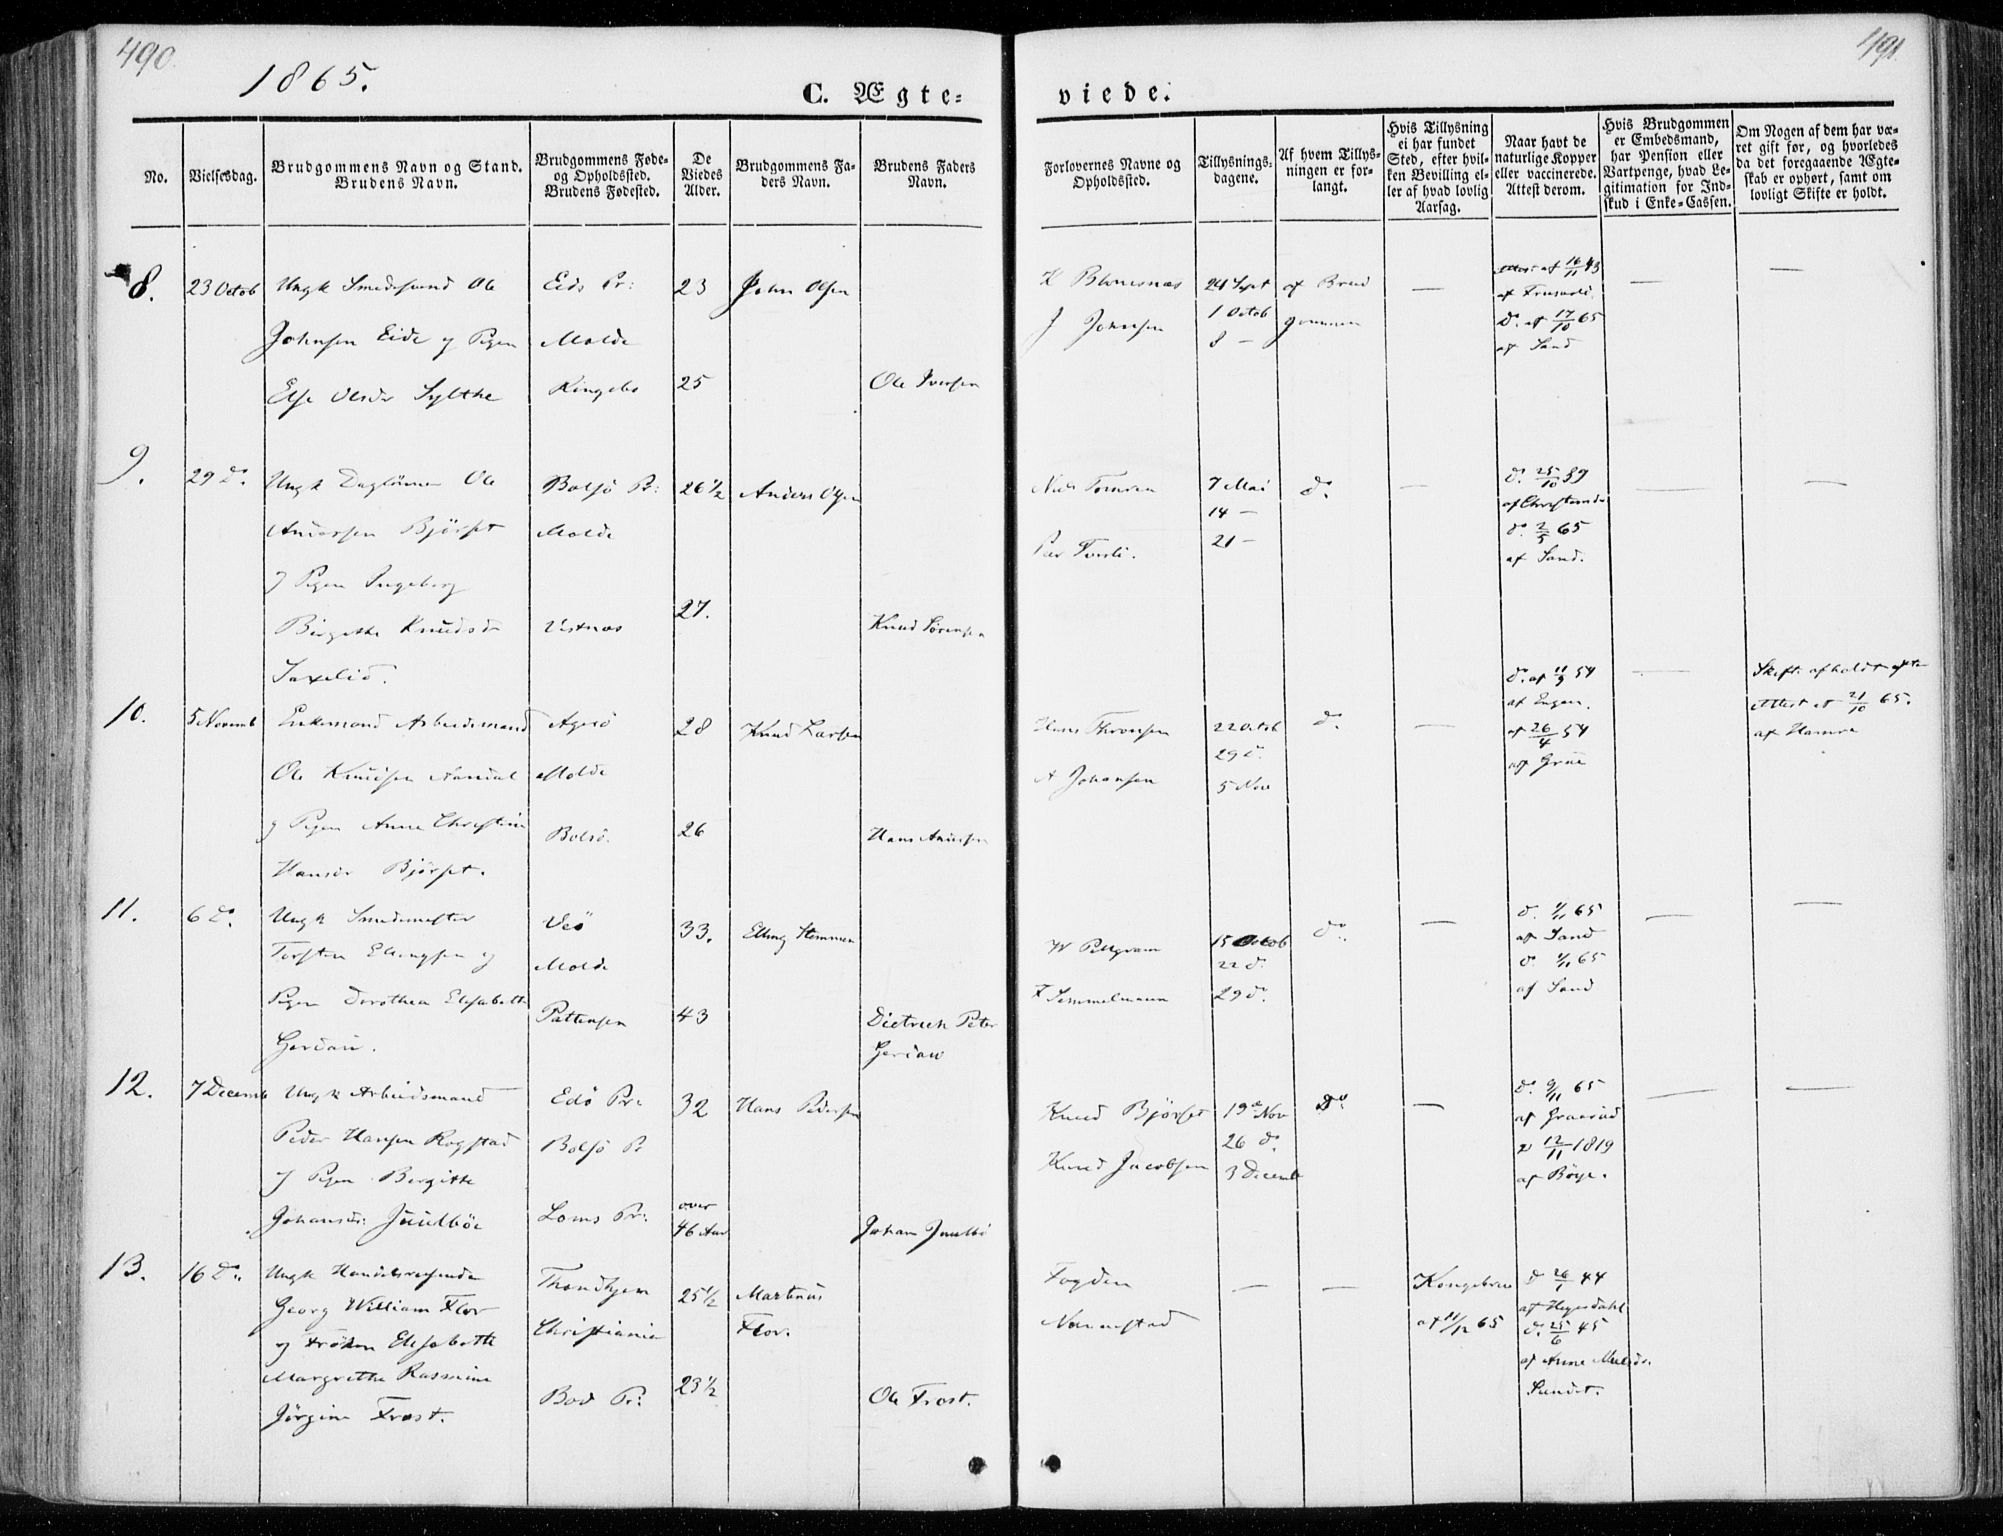 490.
491.
1865.
C. Ægte=
viede.
No.
Vielsesdag.
Brudgommens Navn og Stand.
Brudens Navn.
Brudgommens Føde-
og Opholdssted.
Brudens Fødested.
De
Viedes
Alder.
Brudgommens Fa-
ders Navn.
Brudens Faders
Navn.
Forlovernes Navne og
Opholdssted.
Tillysnings-
dagene.
Af hvem Tillys-
ningen er for-
langt.
Hvis Tillysning
ei har fundet
Sted, efter hvil-
ken Bevilling el-
ler af hvad lovlig
Aarsag.
Naar havt de
naturlige Kopper
eller vaccinerede.
Attest derom.
Hvis Brudgommen
er Embedsmand,
har Pension eller
Vartpenge, hvad Le-
gitimation for Ind-
skud i Enke-Cassen.
Om Nogen af dem har væ-
ret gift før, og hvorledes
da det foregaaende Ægte-
skab er ophørt, samt om
lovligt Skifte er holdt.
8.
23 Octob
Ungk Smedesvend Ole
Johnsen Eide og Pigen
Else Olsdr Sylthe
Eids Pr:
Molde
Ringebo
23
25
John Olsen
Ole Iversen
J Johnsen
24 Sept
1 Octob
8 —
af Brud
gommen
—
Attest af 16/11 43
d. af 17/10 65
af Sand
—
—
9.
29 do.
Ungk Ole
Andersen Bjørset
og Pigen Ingeborg
Birgitte Knudsdr
Saxelid.
Bolsø Pr:
Molde
Vestnæs
26 1/2
27.
Anders Olsen
Knud Sørensen
7 Mai
14 —
21 —
do.
—
do. 25/10 39
do. 2/5 65
af Sand.
—
—
10.
5 Novemb
Enkemand Arbeidsmand
Ole Knudsen Aandal
og Pigen Anne Christine
Hansdr Bjørset.
Agerø
Molde
Bolsø.
28
26
Knud Larsen
Hans Andersen
Hans Thronsen
A Johansen
22 Octob
29 do.
5 Nov
do.
—
af Engen.
af 26/4 54
af Grüe
—
Skifte afholdt efter
Attest af 21/10 65.
af Hamre
11.
6 do.
Ungk Smedemester
Torsten Ellingsen og
Pigen Dorothea Elisabeth
Gerdau.
Veö
Molde
Pattensen
33.
43
Elling
Dietrich Peter
Gerdau
W Pettgram
15 Octob
22 d.
29 do.
do.
—
d. 4/11 65
af Sand
d. 4/11 65
af Sand
—
—
12.
7 Decemb
Ungk Arbeidsmand
Peder Hansen Rogstad
og Pigen Bergitte
Johansdr: Juulböe
Edö Pr:
Bolsö Pr
Loms Pr:
32
over
46 Aar
Hans Pedersen
Johan Juulbö
Knud Bjørset
Knud Jacobsen
19 Nov
26 do
3 Decemb
Do
—
do. 9/11 65
12/11 1819
af Böye.
—
—
13.
16 Do.
Ungk Handelsreisende
Georg William Flor
og Frøken Elisabeth
Margrethe Rasmine
Jörgine Frost.
Throndhjem
Christiania
Bod Pr:
25 1/2
23 1/2
Martinus
Flor.
Ole Frost.
Fogden
—
—
Kongebrev
af 11/12 65
d 26/1 44
d. 25/6 45
af Anne
Sundet.